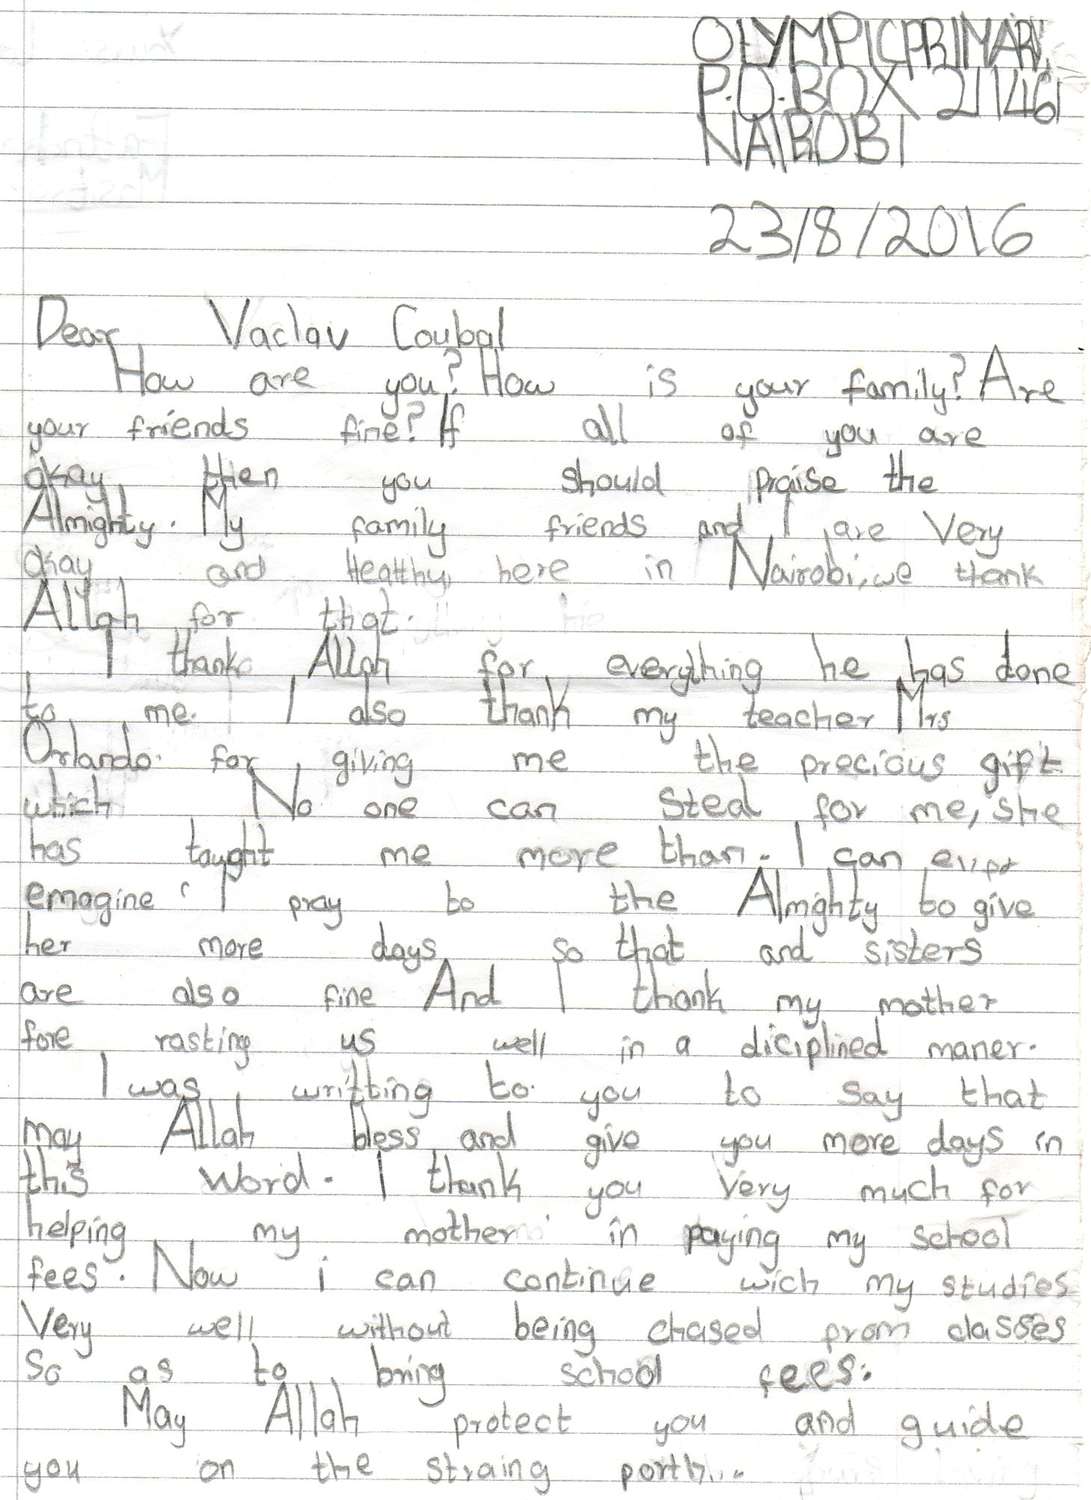 OLYMPIC PRIMARY,
P.O.BOX 21146
NAIROBI
23/8/2016
Dear Vaclav Coubal
How are you? How is your family? Are
your friends fine? If all of you are
okay then you should praise the
Almighty. My family friends and I are Very
okay and Healthy, here in Nairobi, we thank
Allah for that.
I thank Allah for everything he has done
to me. I also thank my teacher Mrs
Orlando. for giving me the precious gift
which No one can Steal for me, she
has taught me more than. I can
emagine. I pray to the Almighty to give
her more days so that and sisters
are also fine And I thank my mother
fore rasting us well in a diciplined maner.
I was writting to you to say that
may Allah bless and give you more days in
this word. I thank you Very much for
helping my mother in paying my school
fees. Now i can continue wich my studies
Very well without being chased prom classes
So as to bring school fees.
May Allah protect you and guide
you on the straing porth...